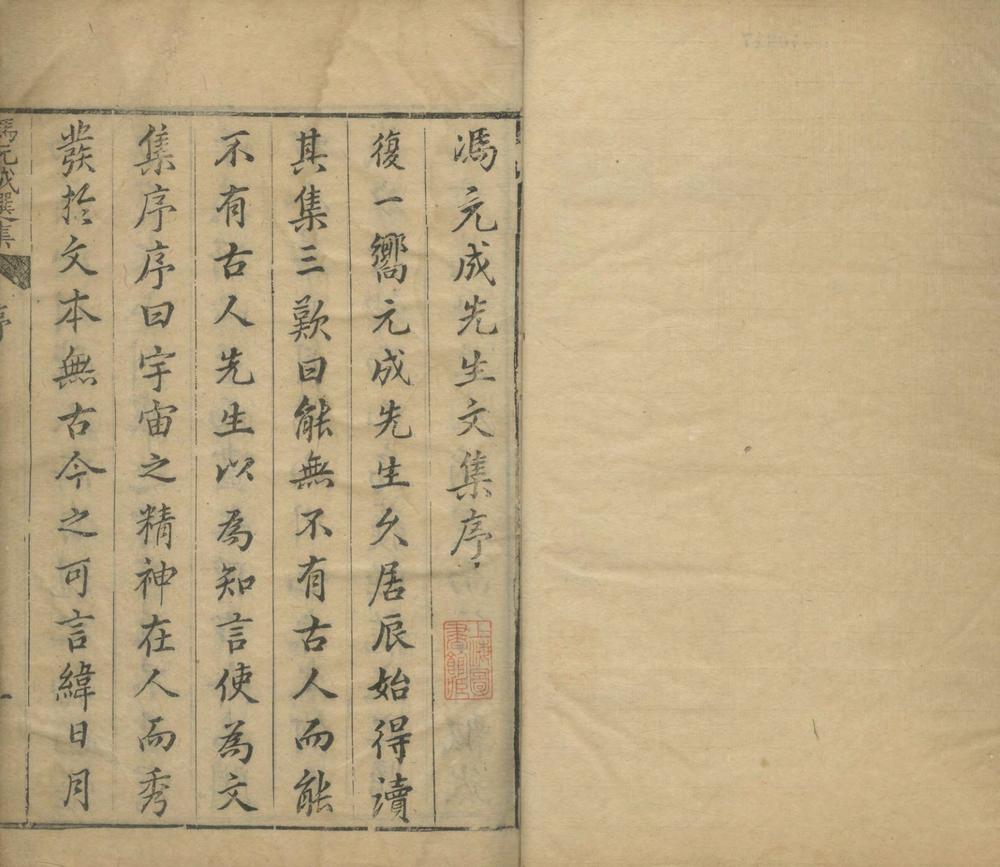 馮元成先生文集序
上海圖
書館藏
復一嚮元成先生久居辰始得讀
其集三歎曰能無不有古人而能
不有古人先生以為知言使為文
集序序曰宇宙之精神在人而秀
發於文本無古今之可言緯日月
馮元成選集
序
一